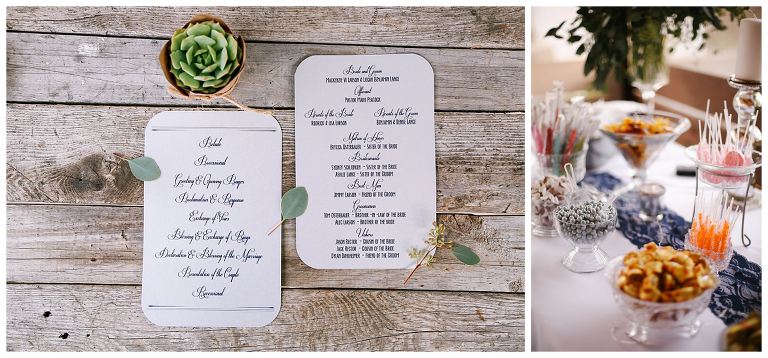 Prelude
Processional
Greeting & Opening Prayer
Declaration & Response
Exchange of Vows
Blessing & Exchange of Rings
Declaration & Blessing of the Marriage
Presentation of the Couple
Recessional
Bride and Groom
Mackenzie W Larson & Logan Benjamin Lance
Officiant
Pastor Mark Peacock
Parents of the Bride
Parents of the Groom
Roderick & Lisa Larson
Benjamin & Debbie Lance
Matron of Honor
- Sister of the Bride
Bridesmaids
Sydney - Sister of the Bride
Ashlie Lance - Sister of the Groom
Best Man
Jimmy Larson - Friend of the Groom
Groomsmen
Tom - Brother-in-Law of the Bride
Alec Larson - Brother of the Bride
Ushers
Jason Rector - Cousin of the Bride
Jack Rector - Cousin of the Bride
Dylan - Friend of the Groom